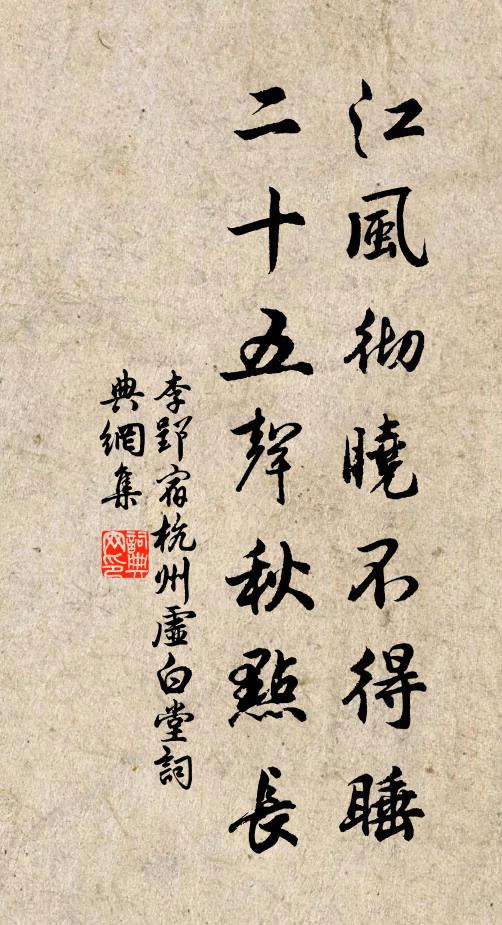 江風彻曉不得睡
二十五聲秋點長
李郢宿杭州虛白堂詞
典網集
詞典
网印